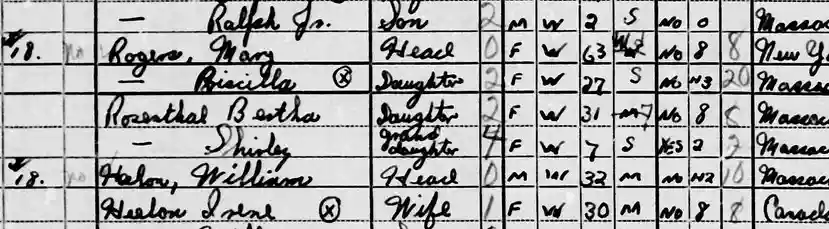 — Ralph Jr. Son 2 M W 2 S No 0 Massac
18. no Rogers, Mary Head 0 F W 63 Wd No 8 8 New Y
— Priscilla ⓧ Daughter 2 F W 27 S No H3 20 Massac
Rosenthal Bertha Daughter 2 F W 31 M 7 No 8 Massac
— Shirley grand daughter 4 F W 7 S YES 2 2 Massac
18. no William Head 0 M W 32 M No H2 10 Massac
Irene ⓧ Wife 1 F W 30 M No 8 8 Canad